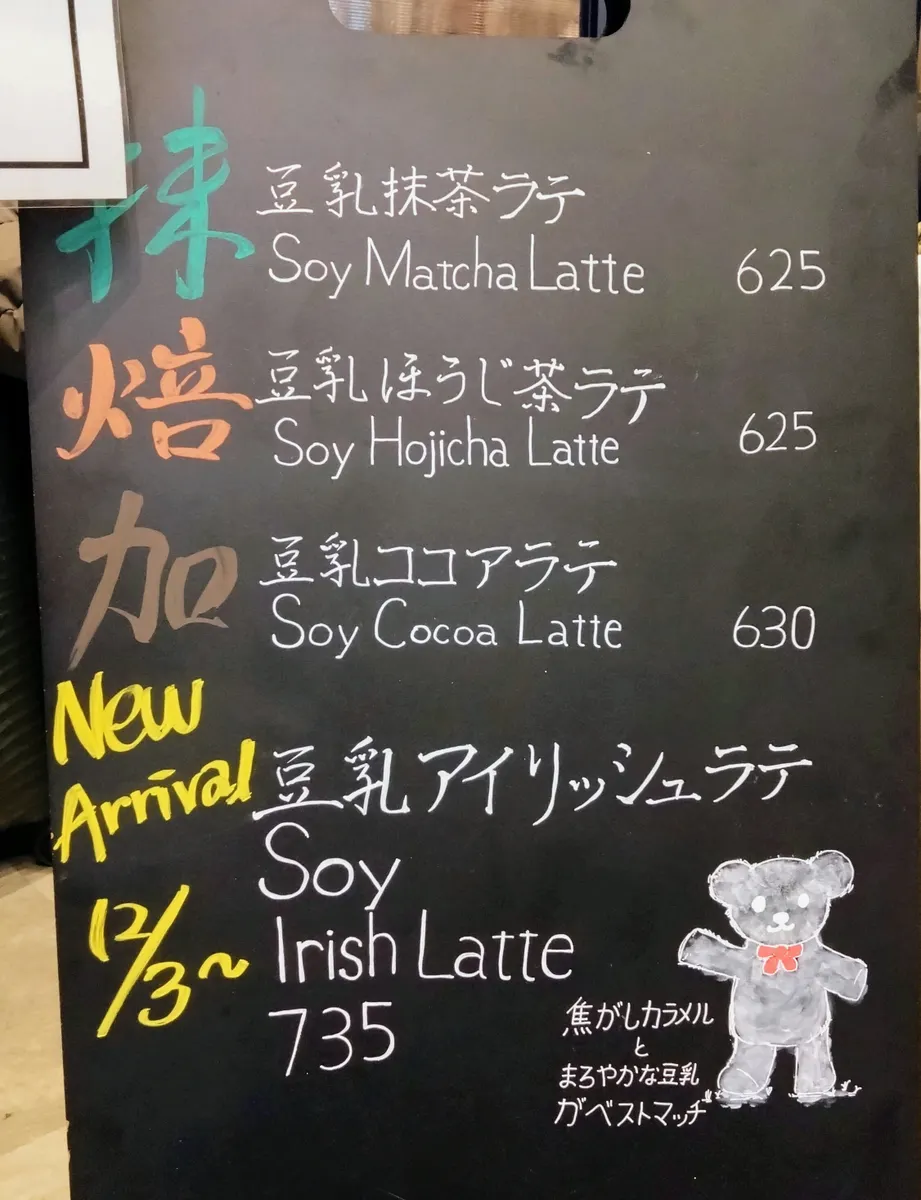 抹
豆乳抹茶ラテ
Soy Matcha Latte 625
焙
豆乳ほうじ茶ラテ
Soy Hojicha Latte 625
加
豆乳ココアラテ
Soy Cocoa Latte 630
New
Arrival
12/3~
豆乳アイリッシュラテ
Soy
Irish Latte
735
焦がしカラメル
と
まろやかな豆乳
がベストマッチ